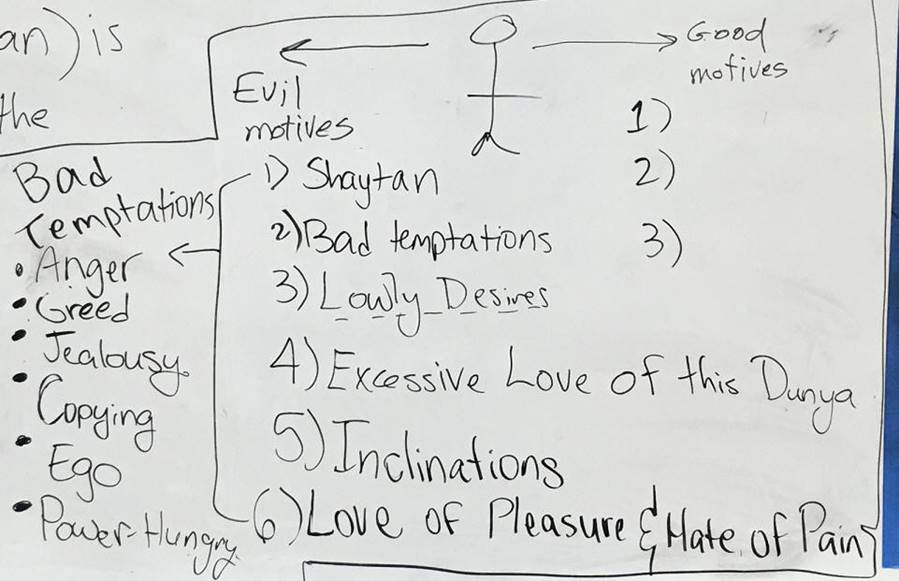 an) is
the
Good
motives
1)
2)
3)
Evil
motives
1) Shaytan
2) Bad temptations
3) Lowly Desires
4) Excessive Love of this Dunya
5) Inclinations
6) Love of Pleasure & Hate of Pain
Bad
Temptations
• Anger
• Greed
• Jealousy
• Copying
• Ego
• Power-Hungry